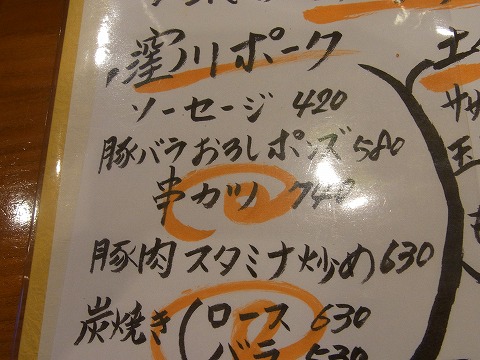 窪川ポーク
ソーセージ 420
豚バラおろしポンズ 580
串カツ 740
豚肉スタミナ炒め 630
炭焼き ロース 630
バラ 530